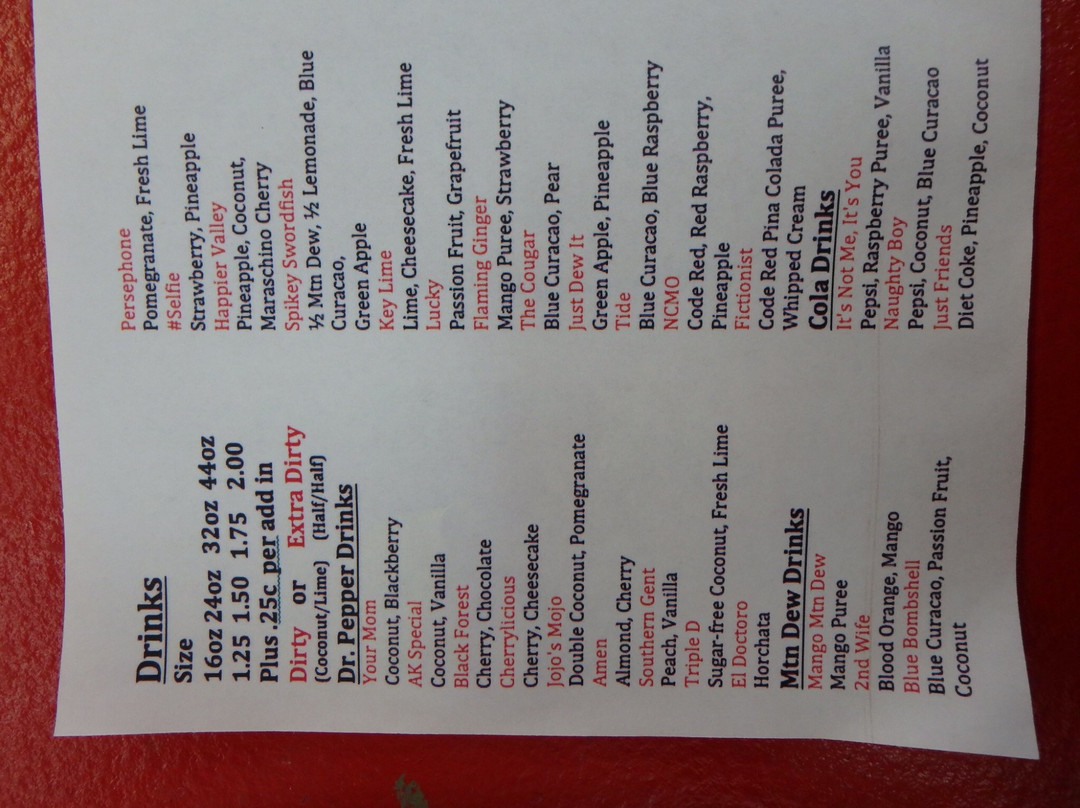 Drinks
Size
16oz 24oz 32oz 44oz
1.25 1.50 1.75 2.00
Plus .25c per add in
Dirty or Extra Dirty
(Coconut/Lime) (Half/Half)
Dr. Pepper Drinks
Your Mom
Coconut, Blackberry
AK Special
Coconut, Vanilla
Black Forest
Cherry, Chocolate
Cherrylicious
Cherry, Cheesecake
Jojo's Mojo
Double Coconut, Pomegranate
Amen
Almond, Cherry
Southern Gent
Peach, Vanilla
Triple D
Sugar-free Coconut, Fresh Lime
El Doctoro
Horchata
Mtn Dew Drinks
Mango Mtn Dew
Mango Puree
2nd Wife
Blood Orange, Mango
Blue Bombshell
Blue Curacao, Passion Fruit,
Coconut
Persephone
Pomegranate, Fresh Lime
#Selfie
Strawberry, Pineapple
Happier Valley
Pineapple, Coconut,
Maraschino Cherry
Spikey Swordfish
½ Mtn Dew, ½ Lemonade, Blue
Curacao,
Green Apple
Key Lime
Lime, Cheesecake, Fresh Lime
Lucky
Passion Fruit, Grapefruit
Flaming Ginger
Mango Puree, Strawberry
The Cougar
Blue Curacao, Pear
Just Dew It
Green Apple, Pineapple
Tide
Blue Curacao, Blue Raspberry
NCMO
Code Red, Red Raspberry,
Pineapple
Fictionist
Code Red Pina Colada Puree,
Whipped Cream
Cola Drinks
It's Not Me, It's You
Pepsi, Raspberry Puree, Vanilla
Naughty Boy
Pepsi, Coconut, Blue Curacao
Just Friends
Diet Coke, Pineapple, Coconut